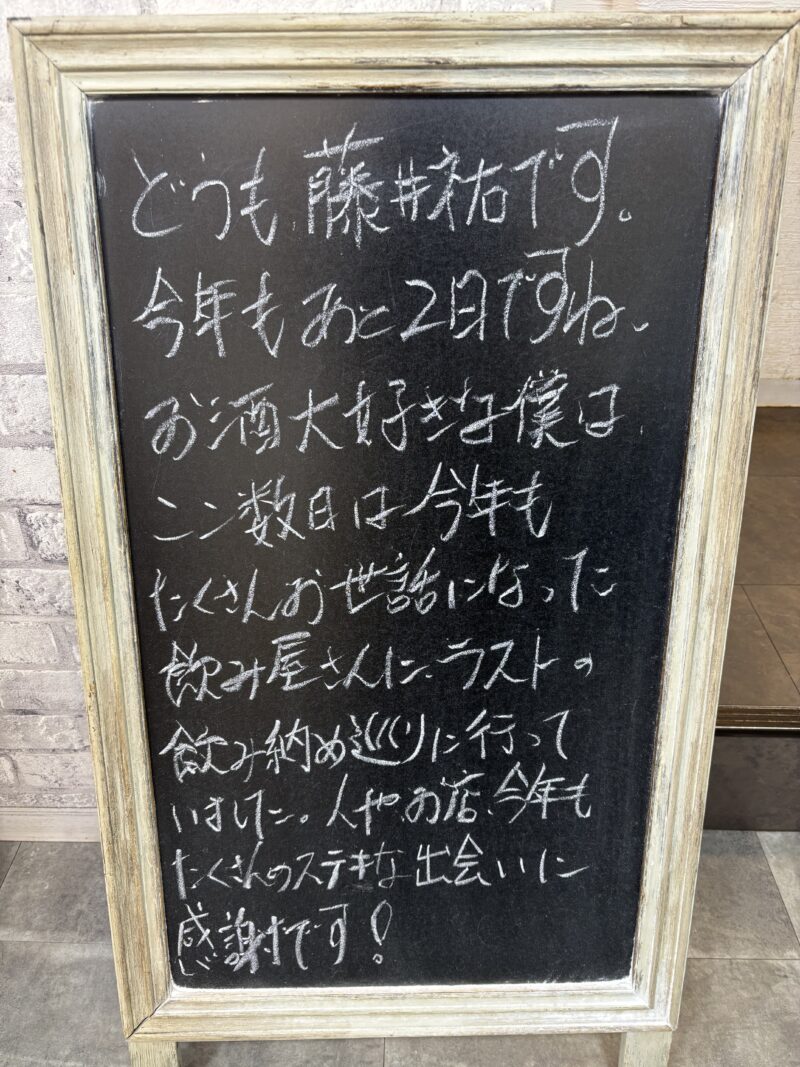 どうも、藤井祐です。
今年もあと2日ですね。
お酒大好きな僕は、
ここ数日は今年も
たくさんお世話になった
飲み屋さんに、ラストの
飲み納め巡りに行って
いました。人やお店、今年も
たくさんのステキな出会いに
感謝です!